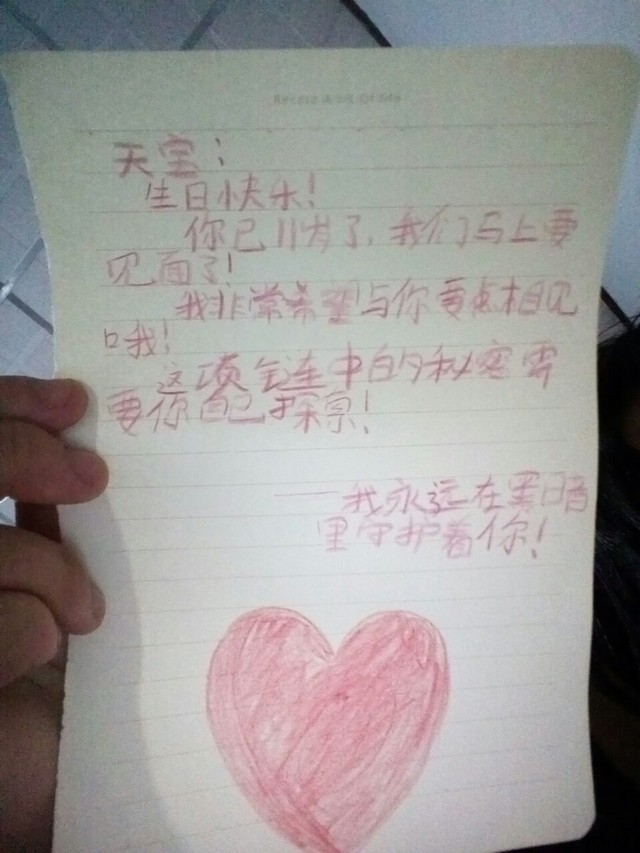 天宝：
生日快乐！
你已11岁了，我们马上要
见面了！
我非常希望与你要点相见
哦！
这项链中的秘密需
要你自己探索！
——我永远在黑暗
里守护着你！